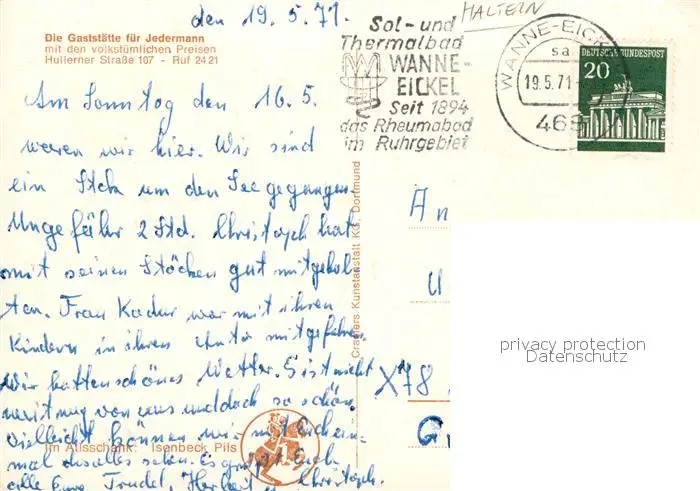 den 19.5.71.
HALTERN
Die Gaststätte für Jedermann
mit den volkstümlichen Preisen
Hullerner Straße 107 - Ruf 2421
Sol- und
Thermalbad
WANNE-
EICKEL
Seit 1894
das Rheumabad
im Ruhrgebiet
WANNE-EICK
sa
19.5.71
465
DEUTSCHE BUNDESPOST
20
Am Sonntag den 16.5.
waren wir hier. Wir sind
ein Stck um den See gegangen.
Ungefähr 2 Std. Christoph hat
mit seinen Stöcken gut mitgehal-
ten. Frau Kadur war mit ihren
Kindern in ihren Auto mitgefahren.
Wir hatten schönes Wetter. Es ist nicht
weit weg von uns und doch so schön.
Vielleicht können wir mit Euch ein-
mal dieses alles sehen. Es grüßt Euch
alle Eure Trudel, Herbert u. Christoph.
Im Ausschank: Isenbeck Pils
Cramers Kunstanstalt KG, Dortmund
An
X78
privacy protection
Datenschutz